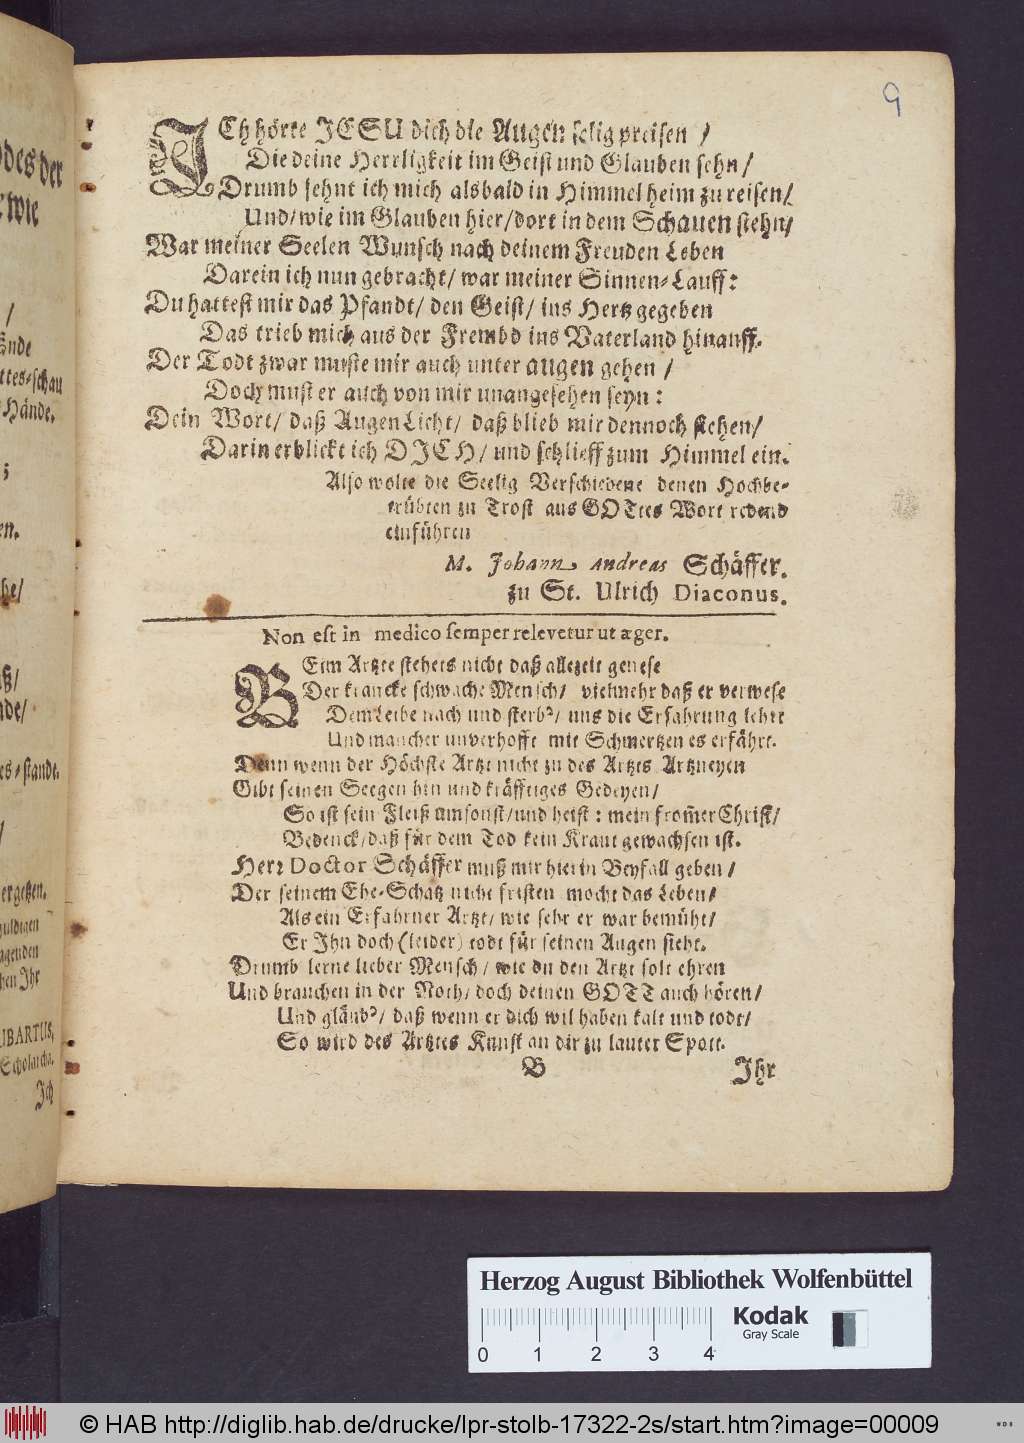 9
ICh hörte JESU dich die Augen selig preisen /
Die deine Herrligkeit im Geist und Glauben sehn /
Drumb sehnt ich mich alsbald in Himmel heim zu reisen /
Und / wie im Glauben hier / dort in dem Schauen stehn /
War meiner Seelen Wunsch nach deinem Freuden Leben
Darein ich nun gebracht / war meiner Sinnen-Lauff:
Du hattest mir das Pfandt / den Geist / ins Hertz gegeben
Das trieb mich aus der Frembd ins Vaterland hinauff.
Der Todt zwar muste mir auch unter augen gehen /
Doch must er auch von mir unangesehen seyn:
Dein Wort / daß Augen Licht / daß blieb mir dennoch stehen /
Darin erblickt ich DICH / und schlieff zum Himmel ein.
Also wolte die Seelig Verschiedene denen Hochbe-
trübten zu Trost aus GOTtes Wort redend
einführen
M. Johann Andreas Schäffer.
zu St. Ulrich Diaconus.
Non est in medico semper relevetur ut æger.
BEim Artzte stehets nicht daß allezeit genese
Der krancke schwache Mensch / vielmehr daß er verwese
Dem Leibe nach und sterb' / uns die Erfahrung lehrt
Und mancher unverhofft mit Schmertzen es erfährt.
Denn wenn der Höchste Artzt nicht zu des Artzts Artzneyen
Gibt seinen Seegen hin und kräfftiges Gedeyen /
So ist sein Fleiß umsonst / und heist: mein from̃er Christ /
Bedenck / daß für dem Tod kein Kraut gewachsen ist.
Herr Doctor Schäffer muß mir hierin Beyfall geben /
Der seinem Ehe-Schatz nicht fristen mocht das Leben /
Als ein Erfahrner Artzt / wie sehr er war bemüht /
Er Ihn doch (leider) todt für seinen Augen sieht.
Drumb lerne lieber Mensch / wie du den Artzt solt ehren
Und brauchen in der Noth / doch deinen GOTT auch hören /
Und gläub' / daß wenn er dich wil haben kalt und todt /
So wird des Artztes Kunst an dir zu lauter Spott.
B
Ihr
Herzog August Bibliothek Wolfenbüttel
Kodak
Gray Scale
0 1 2 3 4
© HAB http://diglib.hab.de/drucke/lpr-stolb-17322-2s/start.htm?image=00009